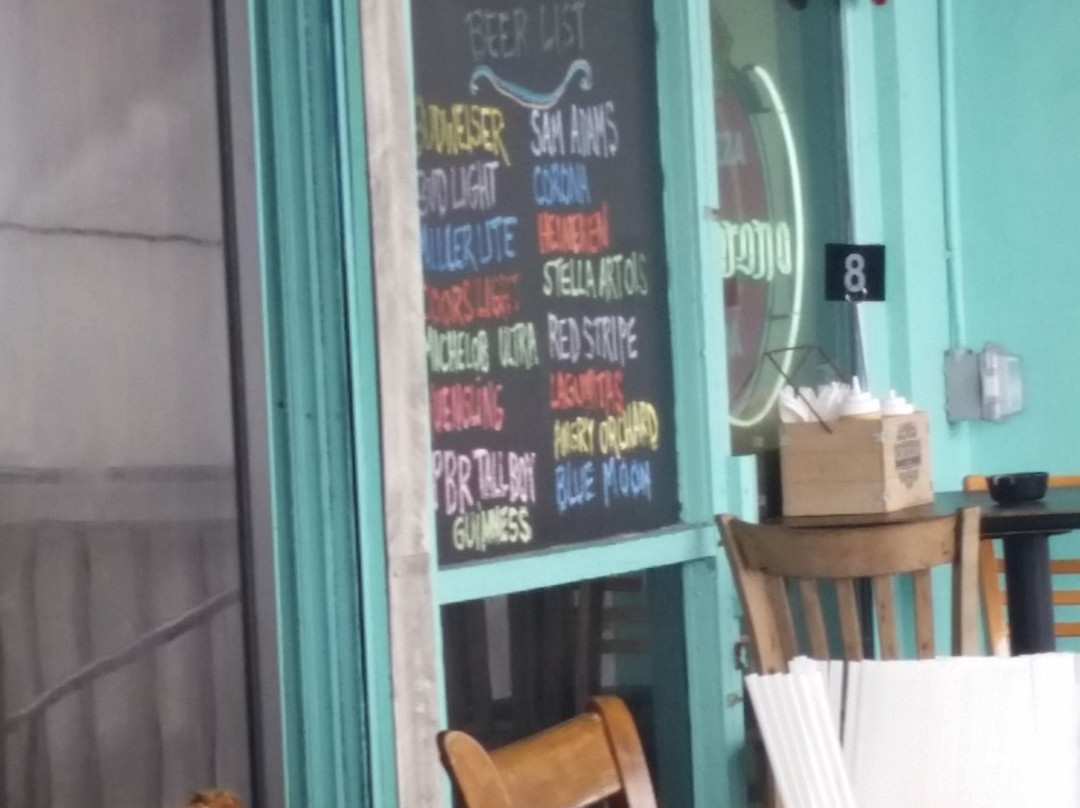 BEER LIST
BUDWEISER
BUD LIGHT
MILLER LITE
COORS LIGHT
MICHELOB ULTRA
YUENGLING
PBR TALL BOY
GUINNESS
SAM ADAMS
CORONA
HEINEKEN
STELLA ARTOIS
RED STRIPE
LAGUNITAS
ANGRY ORCHARD
BLUE MOON
Corona
8